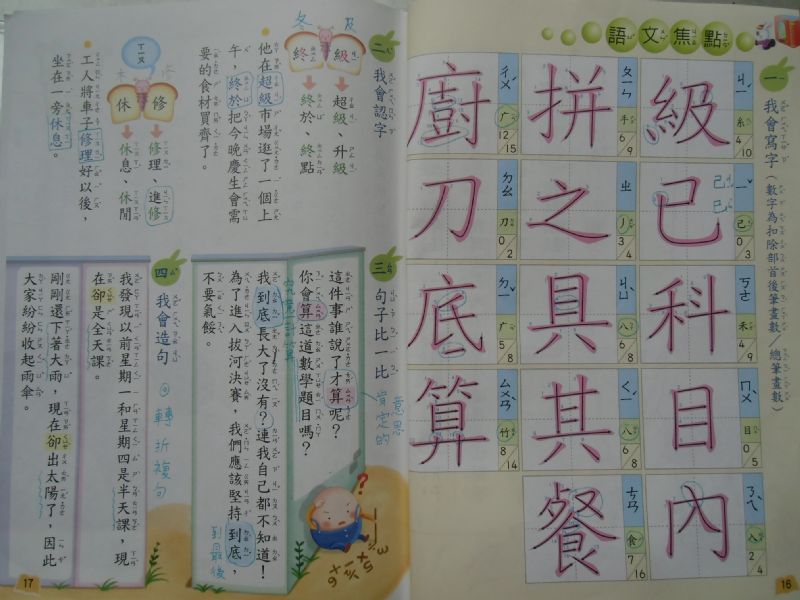 語文焦點
一 我會寫字(數字為扣除部首後筆畫數/總筆畫數)
級 ㄐㄧˊ 糸 4/10
已 ㄧˇ 己 0/3
科 ㄎㄜ 禾 4/9
目 ㄇㄨˋ 目 0/5
內 ㄋㄟˋ 入 2/4
拼 ㄆㄧㄣ 手 6/9
之 ㄓ 丿 3/4
具 ㄐㄩˋ 八 6/8
其 ㄑㄧˊ 八 6/8
餐 ㄘㄢ 食 7/16
廚 ㄔㄨˊ 广 12/15
刀 ㄉㄠ 刀 0/2
底 ㄉㄧˇ 广 5/8
算 ㄙㄨㄢˋ 竹 8/14
16
二 我會認字
冬 及
終 級
級 超級、升級
終 終於、終點
他在超級市場逛了一個上
午,終於把今晚慶生會需
要的食材買齊了。
ㄒㄧㄡ
休 修
修 修理、進修
休 休息、休閒
工人將車子修理好以後,
坐在一旁休息。
三 句子比一比
這件事誰說了才算呢?
肯定的意思
你會算這道數學題目嗎?
計算
我到底長大了沒有?連我自己都不知道!
究竟
為了進入拔河決賽,我們應該堅持到底,
到最後
不要氣餒。
四 我會造句
轉折複句
我發現以前星期一和星期四是半天課,現
在卻是全天課。
剛剛還下著大雨,現在卻出太陽了,因此
大家紛紛收起雨傘。
17